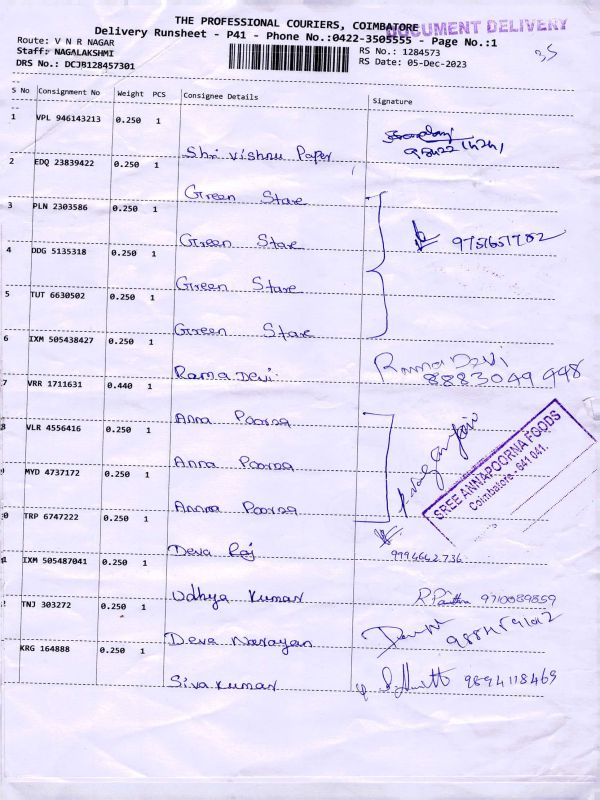 THE PROFESSIONAL COURIERS, COIMBATORE
DOCUMENT DELIVERY
Delivery Runsheet - P41 - Phone No.:0422-3505555 - Page No.:1
Route: V N R NAGAR
Staff: NAGALAKSHMI
DRS No.: DCJB128457301
RS No.: 1284573
RS Date: 05-Dec-2023
35
S No Consignment No Weight PCS Consignee Details Signature
1 VPL 946143213 0.250 1
Shri Vishnu Paper
2 EDQ 23839422 0.250 1
Green Stare
3 PLN 2303586 0.250 1
Green Stare 9751651702
4 DDG 5135318 0.250 1
Green Stare
5 TUT 6630502 0.250 1
Green Stare
6 IXM 505438427 0.250 1
Rama Devi Rama Devi
8883049998
7 VRR 1711631 0.440 1
Anna Poorna
8 VLR 4556416 0.250 1
Anna Poorna
9 MYD 4737172 0.250 1
Anna Poorna
SREE ANNAPOORNA FOODS
Coimbatore - 641 041.
0 TRP 6747222 0.250 1
Deva Raj 9194642736
IXM 505487041 0.250 1
Udhya Kumar 9710889859
TNJ 303272 0.250 1
Deva Narayan
KRG 164888 0.250 1
Siva Kumar 9894118469